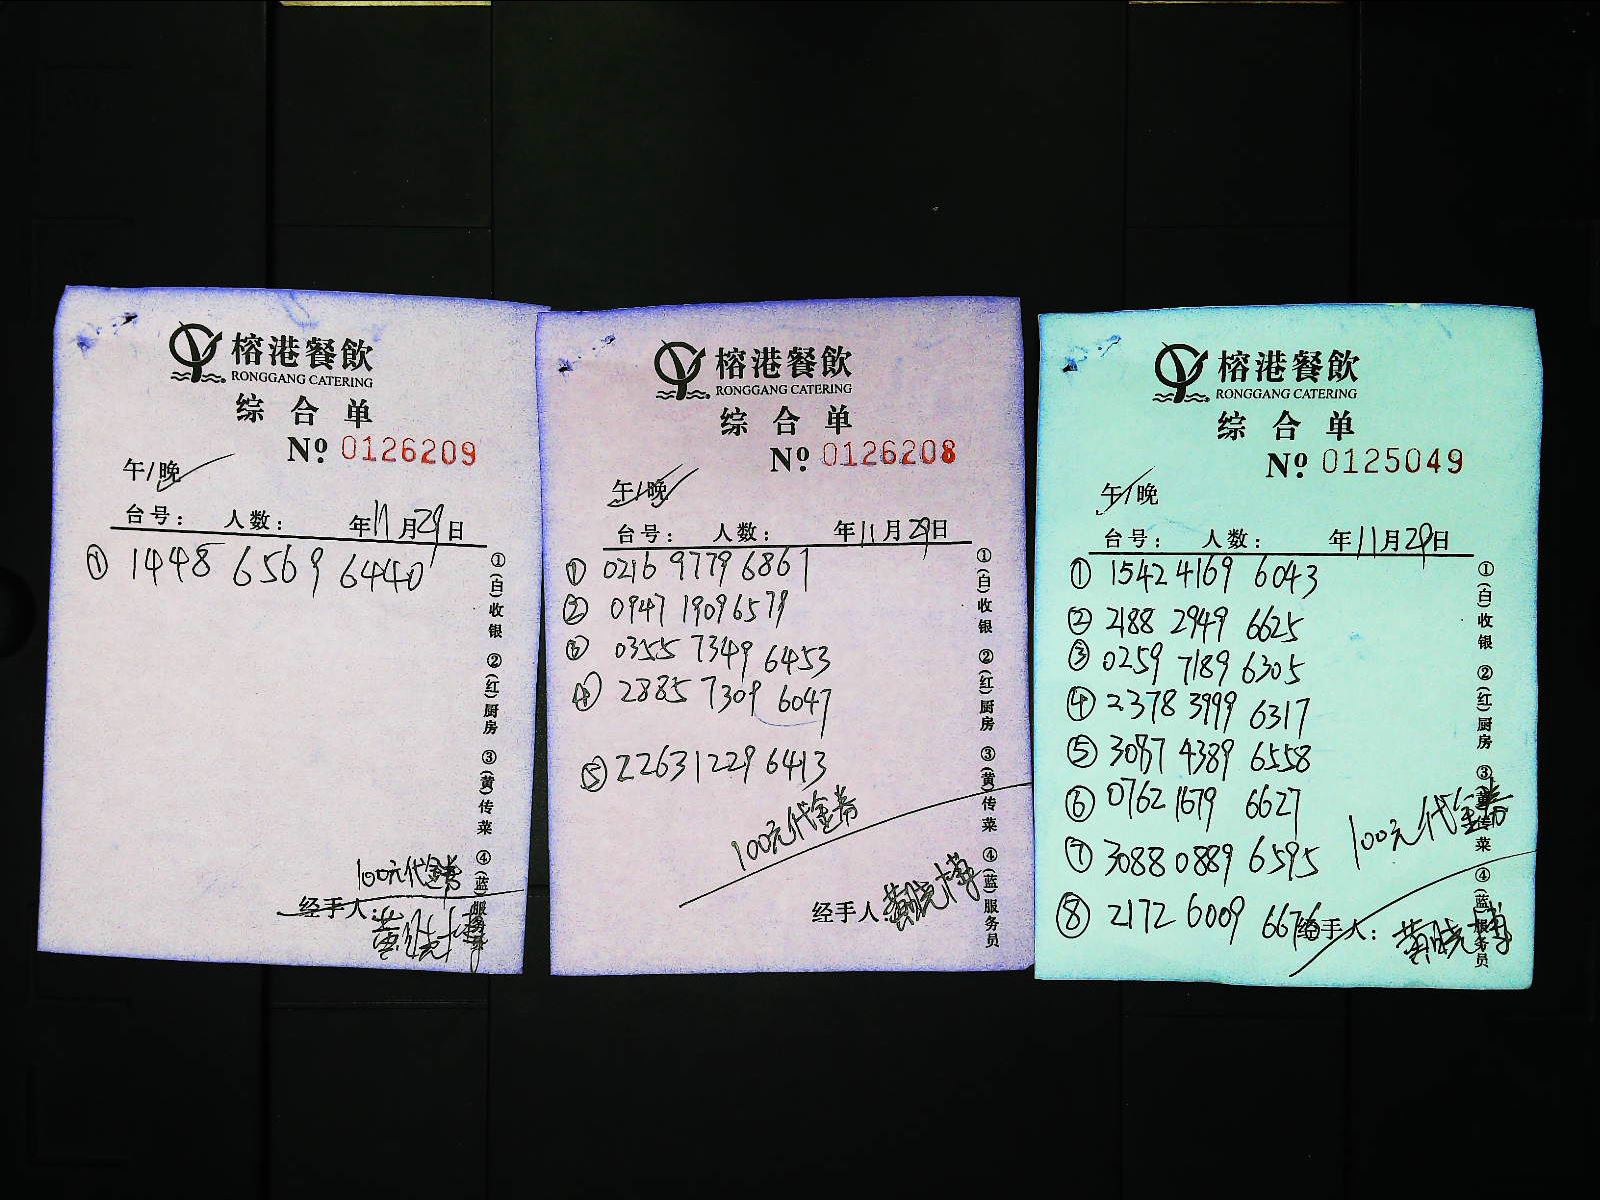 榕港餐飲
RONGGANG CATERING
综合单
Nº 0126209
午/晚
台号： 人数： 年11月29日
① 1448 6569 6440
100元代金券
经手人：
①(白)收银 ②(红)厨房 ③(黄)传菜 ④(蓝)服务员
榕港餐飲
RONGGANG CATERING
综合单
Nº 0126208
午/晚
台号： 人数： 年11月29日
① 0216 9779 6867
② 0947 1909 6579
③ 0355 7349 6453
④ 2885 7309 6047
⑤ 2263 1229 6413
100元代金券
经手人：黄晓博
①(白)收银 ②(红)厨房 ③(黄)传菜 ④(蓝)服务员
榕港餐飲
RONGGANG CATERING
综合单
Nº 0125049
午/晚
台号： 人数： 年11月29日
① 1542 4169 6043
② 2188 2949 6625
③ 0259 7189 6305
④ 2378 3999 6317
⑤ 3087 4389 6558
⑥ 0762 1679 6627
⑦ 3088 0889 6595
⑧ 2172 6009 6676
100元代金券
经手人：黄晓博
①(白)收银 ②(红)厨房 ③(黄)传菜 ④(蓝)服务员